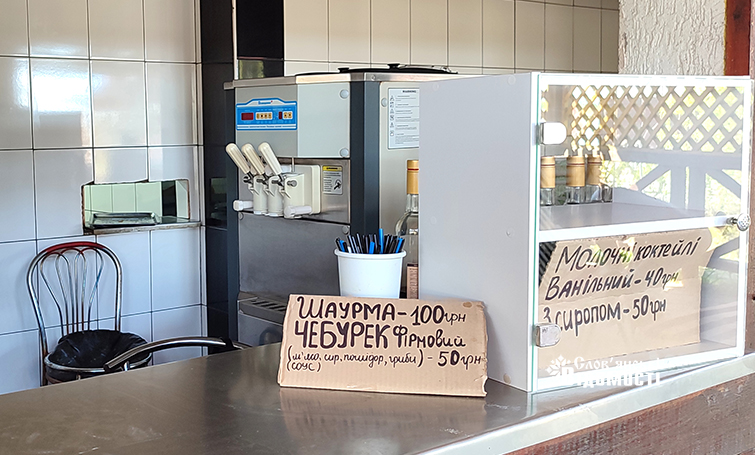 ШАУРМА - 100грн
ЧЕБУРЕК Фірмовий
(м'ясо, сир, помідор, гриби) - 50грн
(соус)
Молочні коктейлі
Ванільний - 40грн
З сиропом - 50грн
Слов'янські
Відомості